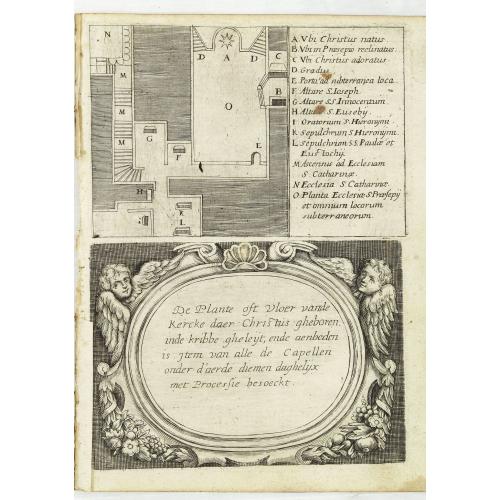 N
M
M
M
G
F
H
I
K
L
D A D
C
B
O
E
A Vbi Christus natus.
B Vbi in Præsepio reclinatus.
C Vbi Christus adoratus.
D Gradus
E Porta ad subterranea loca
F Altare S. Ioseph.
G Altare SS Innocentum.
H Altare S. Eusebÿ.
I Oratorium S. Hieronÿmi.
K Sepulchrum S Hieronÿmi.
L Sepulchrum S S. Paulæ et
Eustochÿ.
M Ascensus ad Ecclesiam
S Catharinæ.
N Ecclesia S Catharinæ.
O Planta Ecclesiæ S Præsepÿ
et omnium locorum
subterraneorum.
De Plante oft Vloer vande
Kercke daer Christus gheboren.
inde kribbe gheleÿt, ende aenboden
is jtem van alle de Capellen
onder d'aerde diemen daghelijx
met Processie besoeckt.